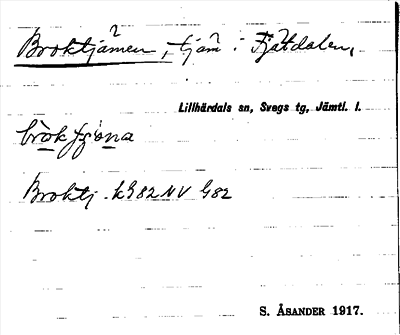 Broktjärnen, tjärn i Fjätdalen,
Lillhärdals sn, Svegs tg, Jämtl. l.
Broktj. kG82NV G82
S. ÅSANDER 1917.